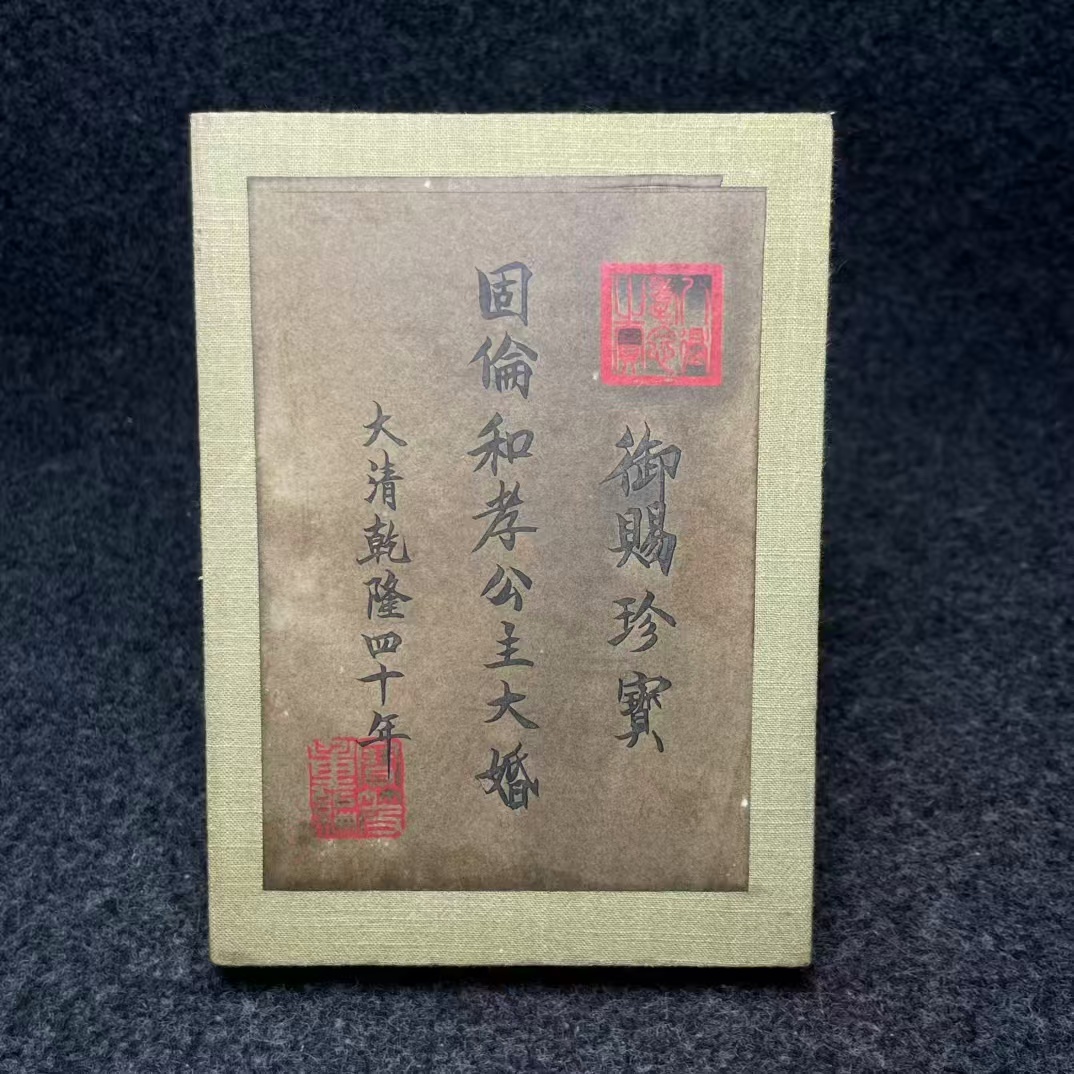 御賜珍寳
固倫和孝公主大婚
大清乾隆四十年